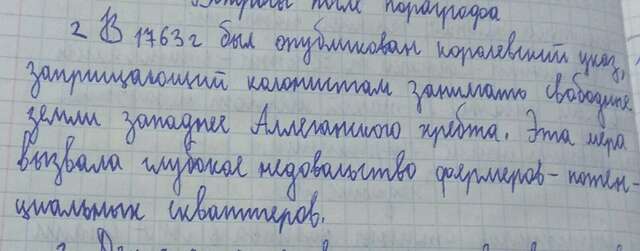 Вопросы после параграфа
2 В 1763г был опубликован королевский указ,
запрещающий колонистам занимать свободные
земли западнее Аллеганского хребта. Эта мера
вызвала глубокое недовольство фермеров-потен-
циальных скваттеров.